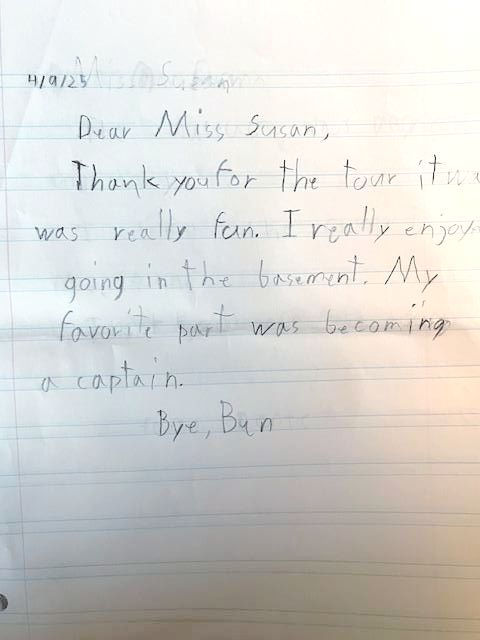 4/9/25
Dear Miss Susan,
Thank you for the tour it wa
was really fun. I really enjoy
going in the basement. My
favorite part was becoming
a captain.
Bye, Ban